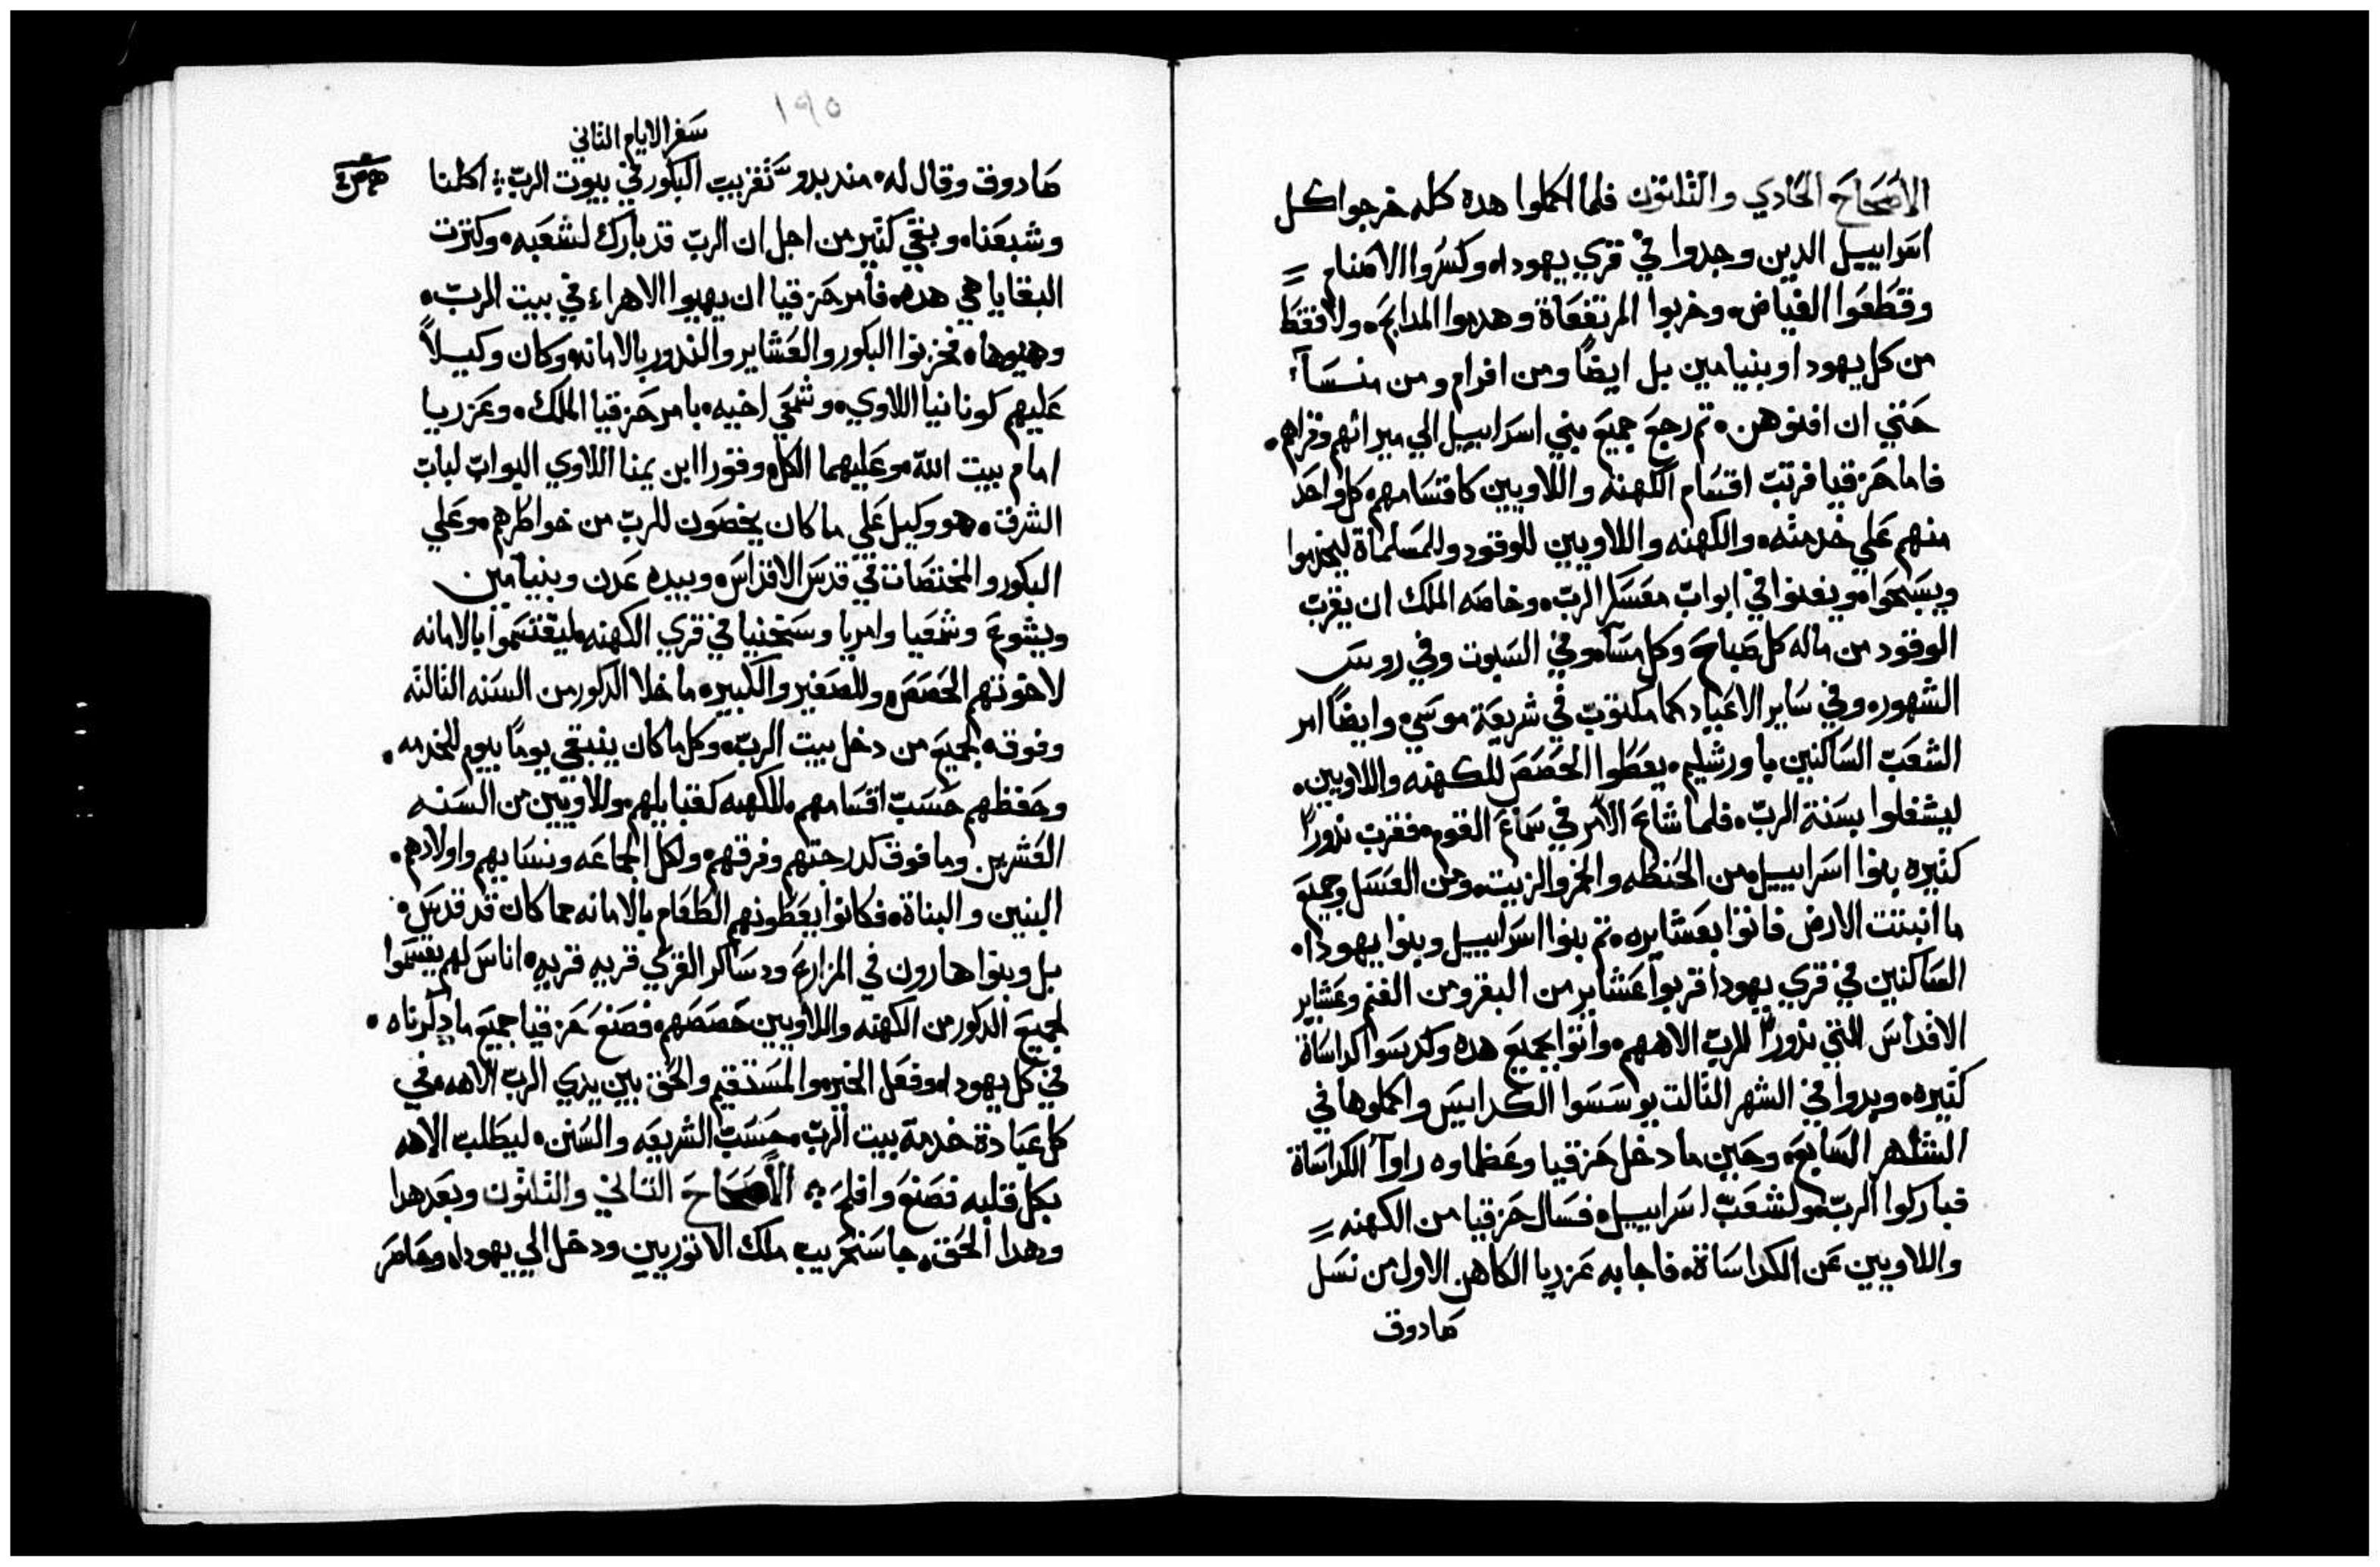 الاصحاح الحادي والثلثون فلما اكملوا هده كله خرجوا كل
اسراييل الدين وجدوا في قري يهودا. وكسروا الاصنام
وقطعوا الغياض. وخربوا المرتفعاة وهدموا المدابح. ولا فقط
من كل يهودا وبنيامين بل ايضًا ومن افرام ومن منسا
حتي ان افنوهن. تم رجع جميع بني اسراييل الي ميراثهم وقراهم.
فاما حزقيا فرتب اقسام الكهنه واللاويين كاقسامهم. كل واحد
منهم علي خدمته. والكهنه واللاويين للوقود وللمسلماة ليخدموا
ويسبحوا. ويغنوا في ابواب معسكر الرب. وخاصه الملك ان يقرب
الوقود من ماله كل صباح وكل مسا. وفي السبوت وفي روس
الشهور. وفي ساير الاعياد كما مكتوب في شريعة موسي. وايضًا امر
الشعب الساكنين باورشليم. يعطوا الحصص للكهنه واللاويين.
ليشغلوا بسنة الرب. فلما شاع الامر في سماع القوم. فقرب نذورًا
كثيره بنوا اسراييل. من الحنطه والخمر والزيت. ومن العسل وجميع
ما انبتت الارض فاتوا بعشايره. تم بنوا اسراييل وبنوا يهودا.
الساكنين في قري يهودا قربوا عشاير من البقر ومن الغنم وعشاير
الاقداس التي نذورًا للرب الاههم. واتوا بجميع هده وكدسوا كداساة
كثيره. وبدوا في الشهر الثالت يوسسوا الكداسيس واكملوها في
الشهر السابع. وحين ما دخل حزقيا وعظماوه راوا الكداساة
فباركوا الرب. ولشعب اسراييل. فسال حزقيا من الكهنه
واللاويين عن الكداساة. فاجابه عزريا الكاهن الاول من نسل
صادوق
١٩٥
سفر الايام الثاني
صادوق وقال له. مند بدو تقريب البكور في بيوت الرب اكلنا
وشبعنا. وبقي كثير من اجل ان الرب قد بارك لشعبه. وكترت
البقايا هي هده. فامر حزقيا ان يهيوا الاهراء في بيت الرب.
وهيوها. فخزنوا البكور والعشاير والندور بالامانه. وكان وكيلاً
عليهم كونانيا اللاوي. وشمعي اخيه. بامر حزقيا الملك. وعزريا
امام بيت الله. وعليهما الكل. وقورا ابن يمنا اللاوي البواب لباب
الشرق. هو وكيل علي ما كان يخصون للرب من خواطرهم. وعلي
البكور والمختصات في قدس الاقداس. وبيده عدن وبنيامين
ويشوع وشمعيا وامريا وسخنيا في قري الكهنه. ليقتسموا بالامانه
لاخوتهم الحصص. وللصغير والكبير. ما خلا الدكور من السنه الثالثه
وفوق. لجميع من دخل بيت الرب. وكل ما كان ينبقي يومًا بيوم للخدمه.
وحفظهم حسب اقسامهم. للكهنه كقبايلهم. وللاويين من السنه
العشرين وما فوق كدرجتهم وفرقهم. ولكل الجماعه ونسايهم واولادهم.
البنين والبناة. فكانوا يعطونهم الطعام بالامانه مما كان قد قدس.
بل وبنوا هارون في المزارع ودساكر القري قريه قريه. اناس لهم يقسموا
لجميع الدكور من الكهنه واللاويين حصصهم. فصنع حزقيا جميع ما دكرناه.
في كل يهودا. وفعل الخير. والمستقيم والحق بين يدي الرب الاهه. في
كل عبادة خدمة بيت الرب. حسب الشريعه والسنن. ليطلب الاهه
بكل قلبه فصنع وافلح. الاصحاح الثاني والثلثون وبعد هدا
وهدا الحق. جا سنحريب ملك الاتوريين ودخل الي يهودا. وحاصر